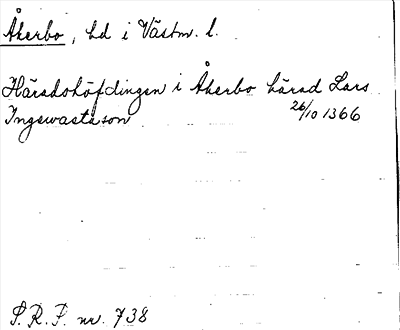 Åkerbo, hd i Västm. l.
Häradshöfdingen i Åkerbo härad Lars
Ingewastason 26/10 1366
S. R. P. nr. 738